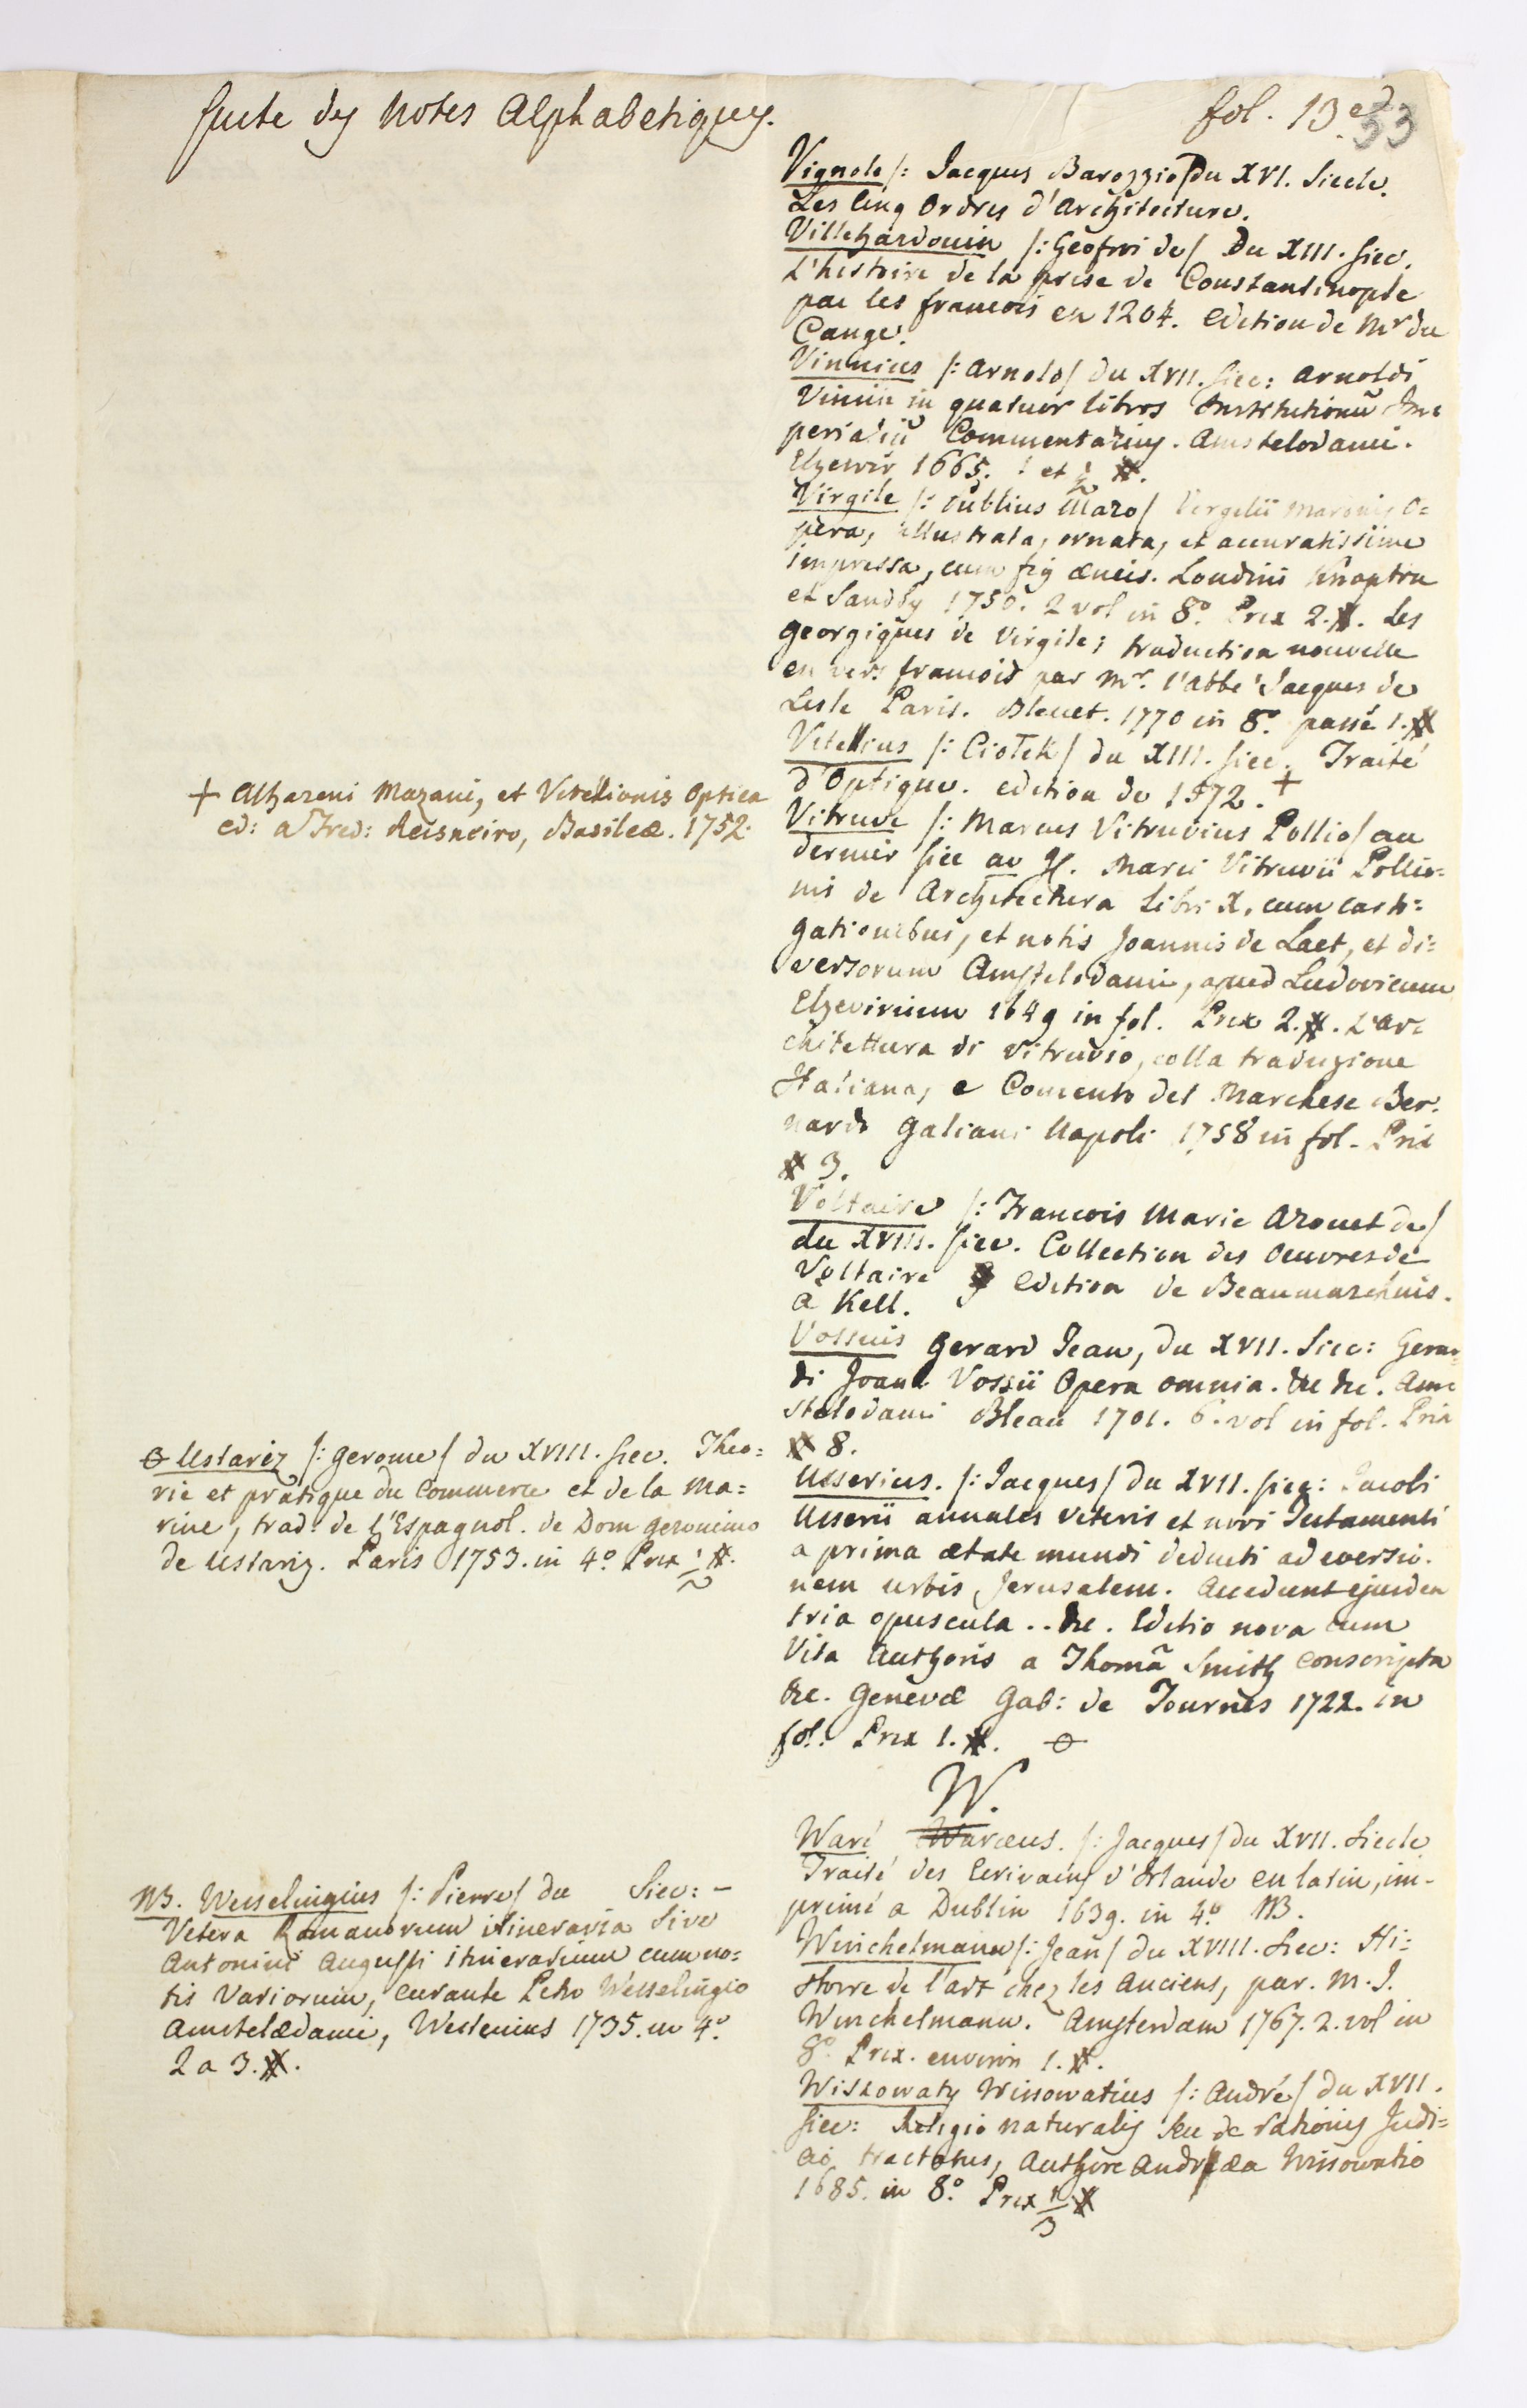 suite des Notes Alphabetiques.
fol. 13.e
53
Vignole /: Jacques Barozzio / du XVI. Siecle.
Les Cinq Ordres d'Architecture.
Villehardouin /: Géofroi de / Du XIII. siec.
L'histoire de la prise de Constantinople
par les francois en 1204. edition de Mr du
Cange.
Vinnius /: Arnold / du XVII. siec: Arnoldi
Vinnii in quatuor libros Institutionũ Im=
perialiũ Commentarius. Amstelodami.
Elzevir 1665. 1 et ½ #.
Virgile /: Publius Maro / Virgilii Maronis O=
pera, illustrata, ornata, et accuratissime
impressa, cum fig æneis. Londini Knapton
et Sandby 1750. 2 vol in 8.o Prix 2.#. Les
georgiques de Virgile; traduction nouvelle
en vers francois par Mr. l'abbé Jacques de
Lisle Paris. Bleuet. 1770 in 8.o passé 1.#
Vitellius /: Ciotek / du XIII. siec. Traité
d'Optique. edition de 1572. +
+ Alhazeni Mazani, et Vitellionis Optica
ed: a Fred: Reisneiro, Basileæ. 1752.
Vitruve /: Marcus Vitruvius Pollio / au
dernier sie av J. Marci Vitruvii Pollio=
nis de Architectura Libri X. cum casti=
gationibus, et notis Joannis de Laet, et di=
versorum Amstelodami, apud Ludovicum
Elzevirium 1649 in fol. Prix 2.#. L'Ar=
chitettura di Vitruvio, colla traduzione
Italiana, e Comento del Marchese Ber=
nardo Galiani Napoli 1758 in fol. Prix
# 3.
Voltaire /: Francois Marie Arouet de /
du XVIII. siec. Collection des Oeuvres de
Voltaire edition de Beaumarchais.
a Kell.
Vossius Gerard Jean, du XVII. Siec: Gerar=
di Joan Vossii Opera omnia. &c &c. Am=
stelodami Bleau 1701. 6. vol in fol. Prix
# 8.
Usserius. /: Jacques / du XVII. siec: Jacobi
Usserii annales veteris et novi Testamenti
a prima ætate mundi deducti ad eversio=
nem urbis Jerusalem. Accedunt ejusdem
tria opuscula .. &c. Editio nova cum
Vita Authoris a Thomã Smith conscripta
&c. Genevæ Gab: de Tournes 1722. in
fol. Prix 1.#. ⊖
⊖ Ustariz /: Gerome / du XVIII. siec. Theo=
rie et pratique du Commerce et de la Ma=
rine, trad: de l'Espagnol. de Dom Geronimo
de Ustariz. Paris 1753. in 4.o Prix ½ #.
W.
Waré Waræus. /: Jacques / du XVII. Siecle
Traité des Ecrivains d'Irlande en latin, im-
primé a Dublin 1639. in 4.o NB.
NB. Wesselingius /: Pierre / du Siec: -
Vetera Romanorum itineraria sive
Antonini Augusti itinerarium cum no=
tis Variorum, curante Petro Wesselingio
Amstelædami, Westenius 1735. in 4.o
2 a 3.#.
Winchelmann /: Jean / du XVIII. siec: Hi=
stoire de l'art chez les Anciens, par. M. J.
Winchelmann. Amsterdam 1767. 2. vol in
8.o Prix. environ 1.#.
Wiszowaty Wissowatius /: André / du XVII.
siec: Religio naturalis seu de rationis Judi=
cio tractatus, Authore Andræa Wissowatio
1685. in 8.o Prix 1/3 #